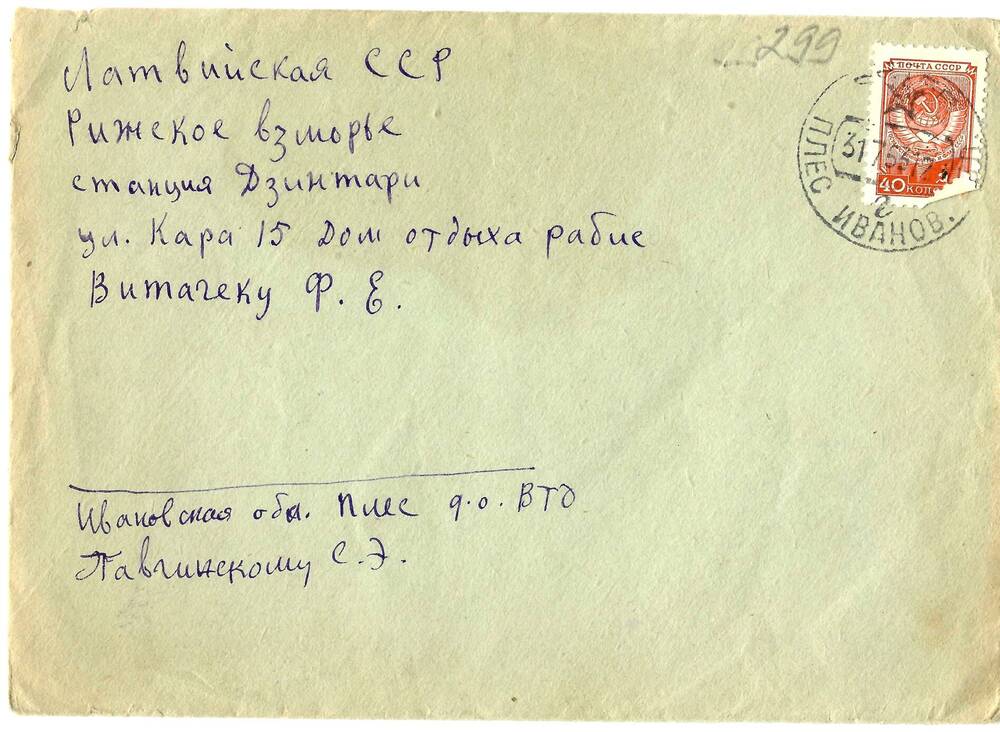 299
ПОЧТА СССР
40 КОП
31 7 53 12
ПЛЕС ИВАНОВ.
Латвийская ССР
Рижское взморье
станция Дзинтари
ул. Кара 15 Дом отдыха рабис
Витачеку Ф. Е.
Ивановская обл. Плес д.о. ВТО
Павчинскому С.Э.